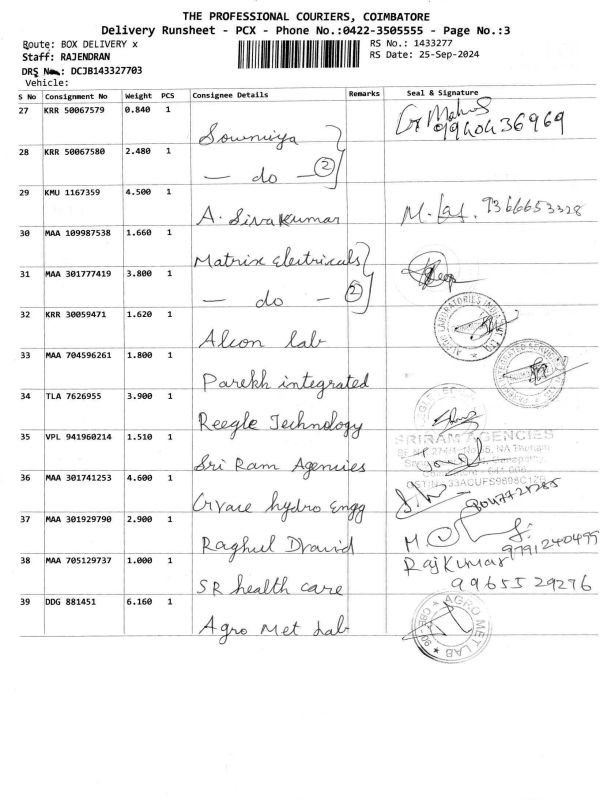 THE PROFESSIONAL COURIERS, COIMBATORE
Delivery Runsheet - PCX - Phone No.:0422-3505555 - Page No.:3
Route: BOX DELIVERY x
RS No.: 1433277
Staff: RAJENDRAN
RS Date: 25-Sep-2024
DRS No.: DCJB143327703
Vehicle:
S No Consignment No Weight PCS Consignee Details Remarks Seal & Signature
27 KRR 50067579 0.840 1 Sowmiya 9940436969
28 KRR 50067580 2.480 1 — do — 2
29 KMU 1167359 4.500 1 A. Sivakumar 9366653328
30 MAA 109987538 1.660 1 Matrix Electricals
31 MAA 301777419 3.800 1 — do — 2
32 KRR 30059471 1.620 1 Alcon lab
33 MAA 704596261 1.800 1 Parekh integrated
34 TLA 7626955 3.900 1 Reegle Technology
35 VPL 941960214 1.510 1 Sri Ram Agencies SRIRAM AGENCIES
36 MAA 301741253 4.600 1 hydro Engg
37 MAA 301929790 2.900 1 Raghul Dravid 9791240499
38 MAA 705129737 1.000 1 SR health care RajKumar 9965529276
39 DDG 881451 6.160 1 Agro Met Lab AGRO MET LAB